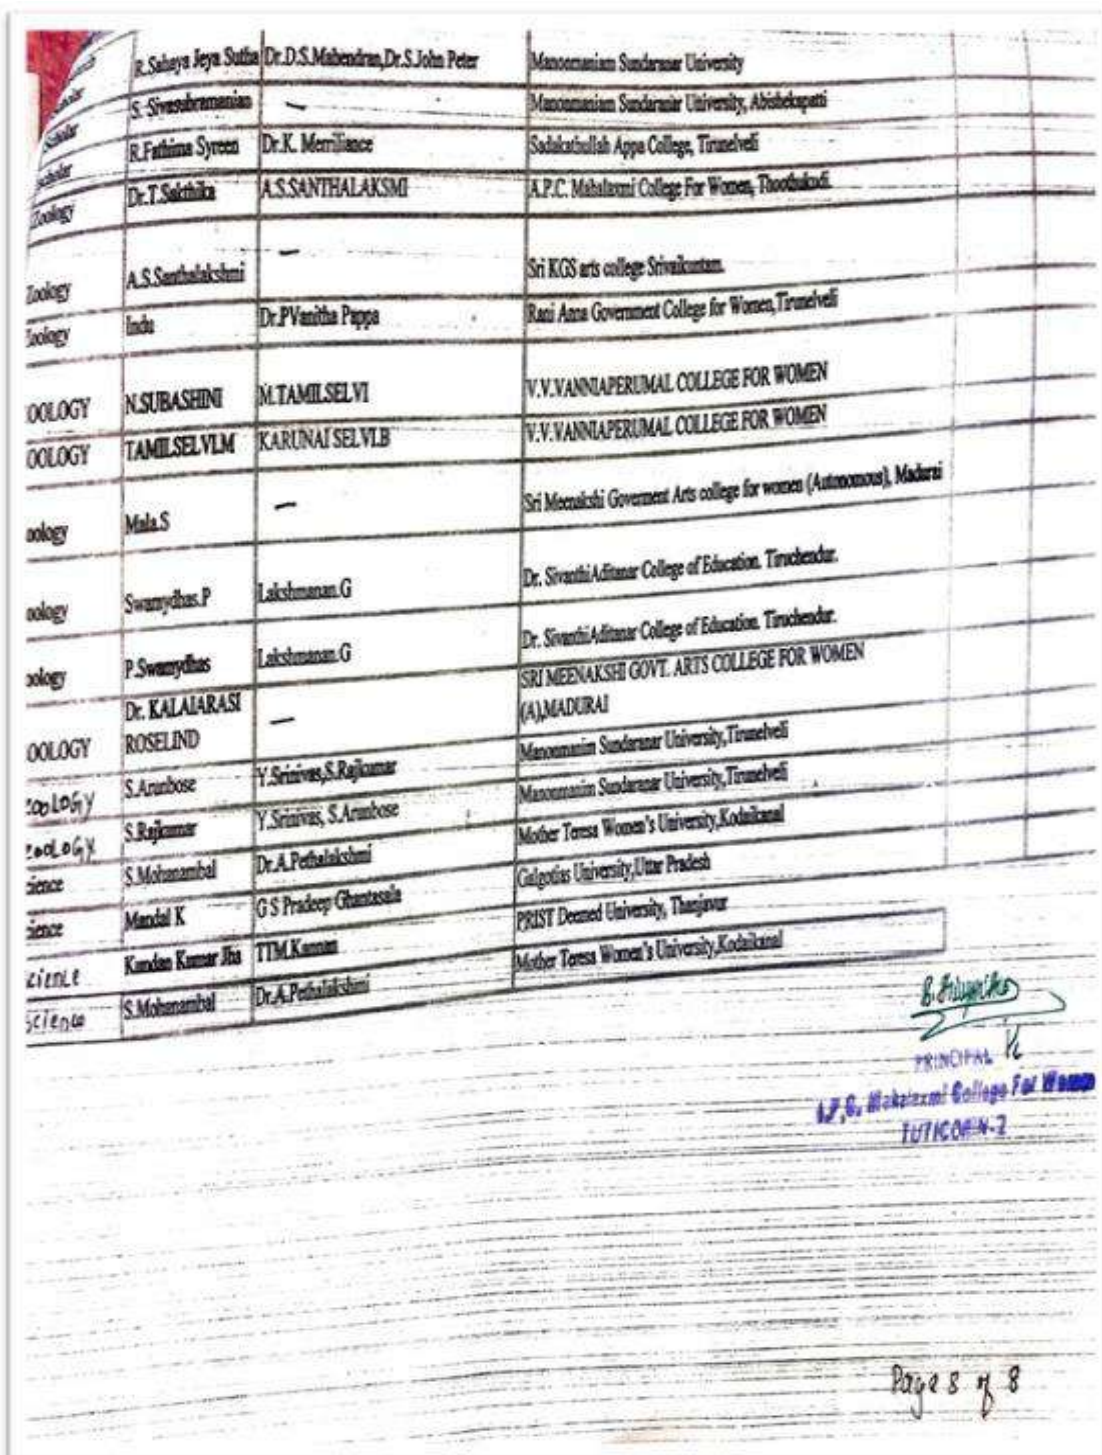 R.Sahaya Jeya Sutha Dr.D.S.Mahendran,Dr.S.John Peter Manonmaniam Sundaranar University
Scholar S. Sivasubramanian — Manonmaniam Sundaranar University, Abishekapatti
Scholar R.Fathima Syreen Dr.K. Merriliance Sadakathullah Appa College, Tirunelveli
Zoology Dr.T.Sakthika A.S.SANTHALAKSMI A.P.C. Mahalaxmi College For Women, Thoothukudi.
Zoology A.S.Santhalakshmi — Sri KGS arts college Srivaikuntam.
Zoology Indu Dr.PVanitha Pappa Rani Anna Government College for Women,Tirunelveli
OOLOGY N.SUBASHINI M.TAMILSELVI V.V.VANNIAPERUMAL COLLEGE FOR WOMEN
OOLOGY TAMILSELVI.M KARUNAI SELVI.B V.V.VANNIAPERUMAL COLLEGE FOR WOMEN
oology Mala.S — Sri Meenakshi Goverment Arts college for women (Autonomous), Madurai
oology Swamydhas.P Lakshmanan.G Dr. SivanthiAditanar College of Education. Tiruchendur.
oology P.Swamydhas Lakshmanan.G Dr. SivanthiAditanar College of Education. Tiruchendur.
OOLOGY Dr. KALAIARASI ROSELIND — SRI MEENAKSHI GOVT. ARTS COLLEGE FOR WOMEN (A),MADURAI
ZOOLOGY S.Arunbose Y.Srinivas,S.Rajkumar Manonmanim Sundaranar University,Tirunelveli
ZOOLOGY S.Rajkumar Y.Srinivas, S.Arunbose Manonmanim Sundaranar University,Tirunelveli
cience S.Mohanambal Dr.A.Pethalakshmi Mother Teresa Women's University,Kodaikanal
cience Mandal K G S Pradeep Ghantasala Galgotias University,Uttar Pradesh
cience Kundan Kumar Jha TTM.Kannan PRIST Deemed University, Thanjavur
science S.Mohanambal Dr.A.Pethalakshmi Mother Teresa Women's University,Kodaikanal
PRINCIPAL i/c
A.P.C. Mahalaxmi College For Women
TUTICORIN-2
Page 8 of 8